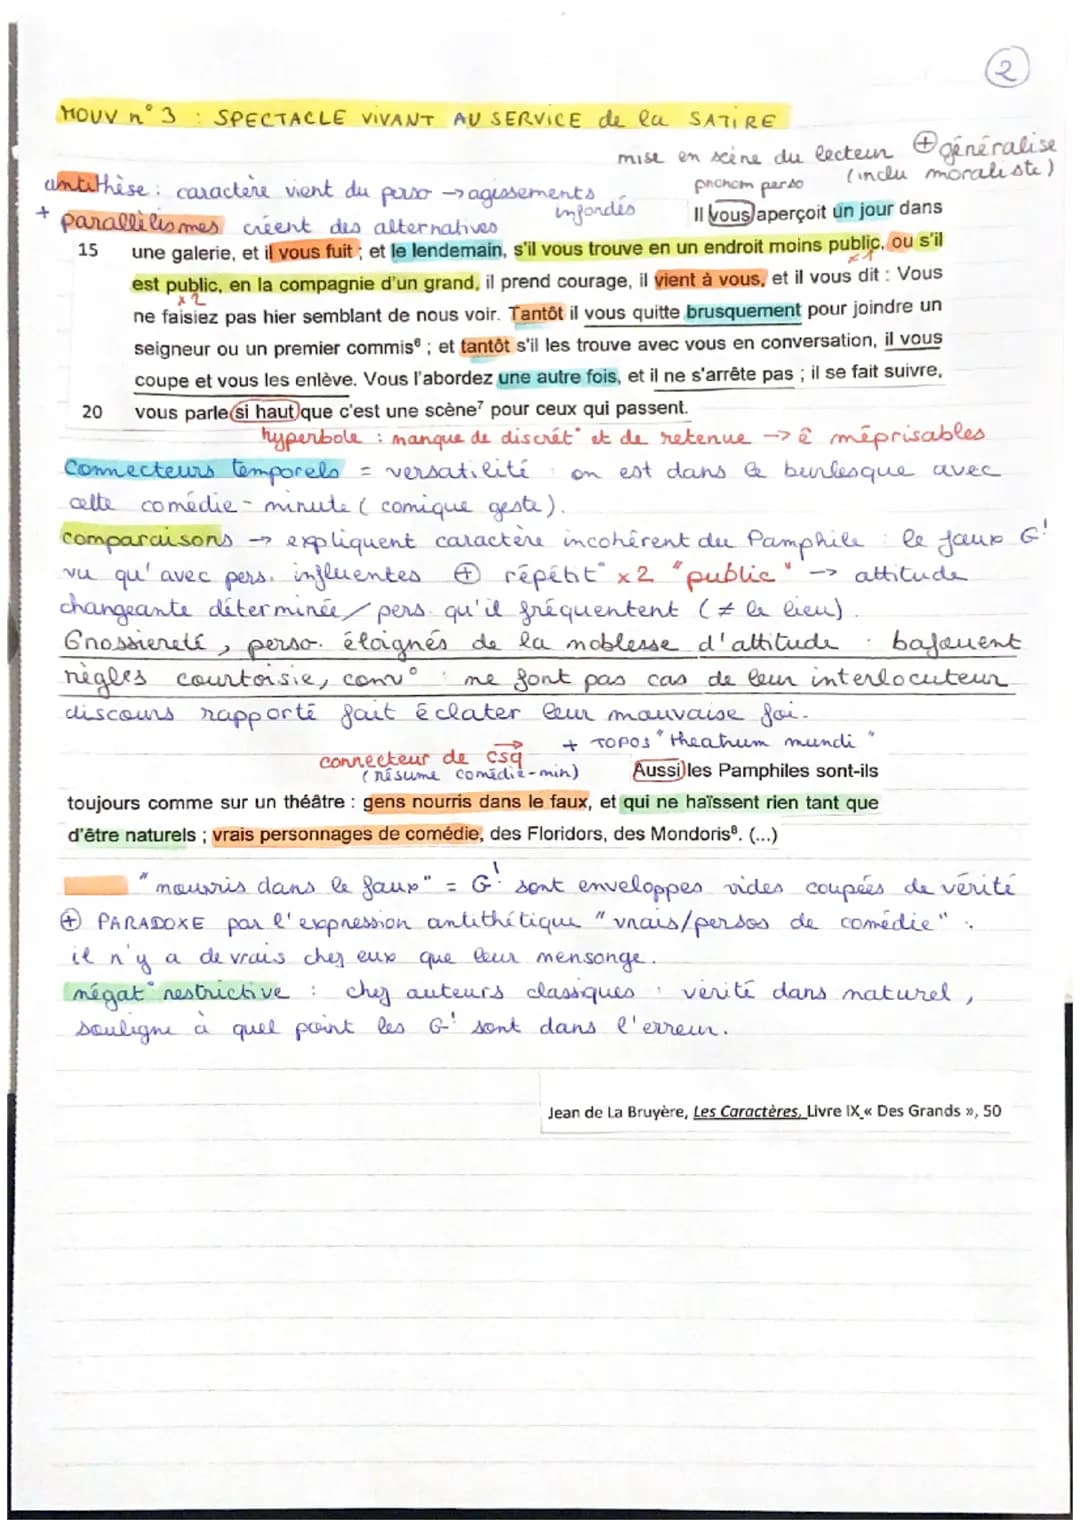 2
MOUV n° 3 : SPECTACLE VIVANT AU SERVICE de la SATIRE
mise en scène du lecteur ⊕ généralise
pronom perso (inclu moraliste)
antithèse : caractère vient du perso → agissements
infondés
+ parallélismes créent des alternatives
Il vous aperçoit un jour dans
15 une galerie, et il vous fuit ; et le lendemain, s'il vous trouve en un endroit moins public, ou s'il
x1
est public, en la compagnie d'un grand, il prend courage, il vient à vous, et il vous dit : Vous
x2
ne faisiez pas hier semblant de nous voir. Tantôt il vous quitte brusquement pour joindre un
seigneur ou un premier commis⁶ ; et tantôt s'il les trouve avec vous en conversation, il vous
coupe et vous les enlève. Vous l'abordez une autre fois, et il ne s'arrête pas ; il se fait suivre,
20 vous parle si haut que c'est une scène⁷ pour ceux qui passent.
hyperbole : manque de discrét° et de retenue → ê méprisables
Connecteurs temporels = versatilité : on est dans le burlesque avec
cette comédie-minute (comique geste).
comparaisons → expliquent caractère incohérent du Pamphile : le faux G!
vu qu'avec pers. influentes ⊕ répétit° x2 "public" → attitude
changeante déterminée / pers. qu'il fréquentent (≠ le lieu).
Grossiereté, perso. éloignés de la noblesse d'attitude : bafouent
règles courtoisie, conv° : ne font pas cas de leur interlocuteur
discours rapporté fait éclater leur mauvaise foi.
+ TOPOS "theatrum mundi"
connecteur de csq
(résume comédie-min)
Aussi les Pamphiles sont-ils
toujours comme sur un théâtre : gens nourris dans le faux, et qui ne haïssent rien tant que
d'être naturels ; vrais personnages de comédie, des Floridors, des Mondoris⁸. (...)
"nourris dans le faux" = G! sont enveloppes vides coupées de vérité
⊕ PARADOXE par l'expression antithétique "vrais/persos de comédie" :
il n'y a de vrais chez eux que leur mensonge.
négat° restrictive : chez auteurs classiques : vérité dans naturel,
souligne à quel point les G! sont dans l'erreur.
Jean de La Bruyère, Les Caractères, Livre IX « Des Grands », 50